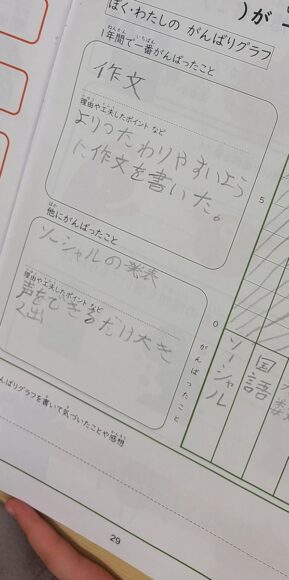 ぼく・わたしの がんばりグラフ
)が
1年間で一番がんばったこと
作文
理由や工夫したポイント など
よりつたわりやすいよう
に作文を書いた。
他にがんばったこと
ソーシャルの発表
理由や工夫したポイント など
声をできるだけ大き
く出
5
0
がんばったこと
ソーシャル
国語
んばりグラフを書いて気づいたことや感想
29